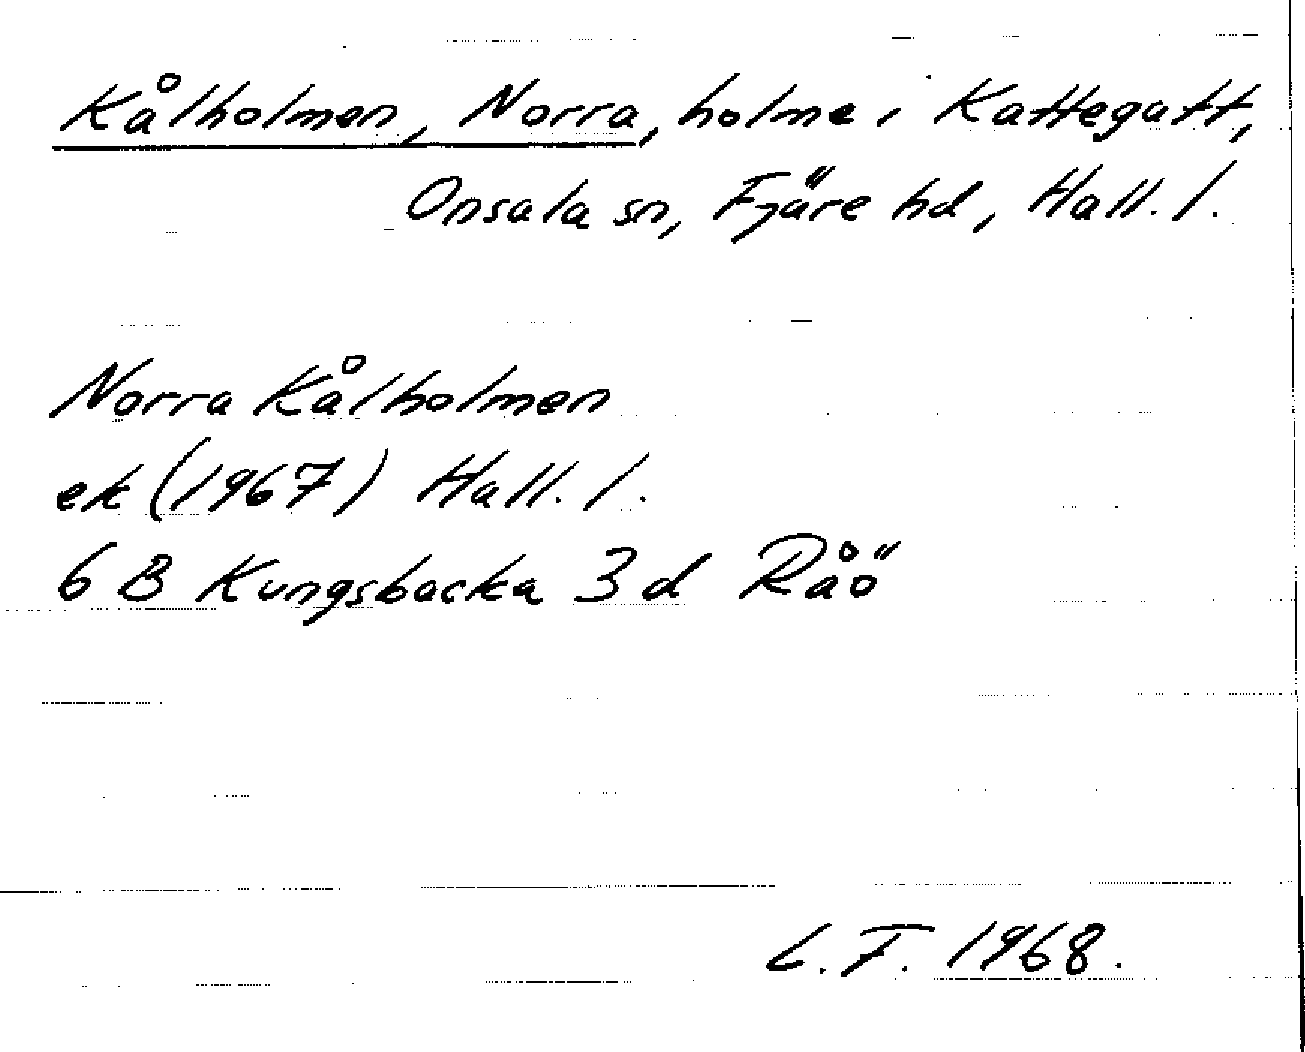 Kålholmen, Norra, holme i Kattegatt,
Onsala sn, Fjäre hd, Hall. l.
Norra Kålholmen
ek (1967) Hall. l.
6 B Kungsbacka 3 d Råö
L. F. 1968.